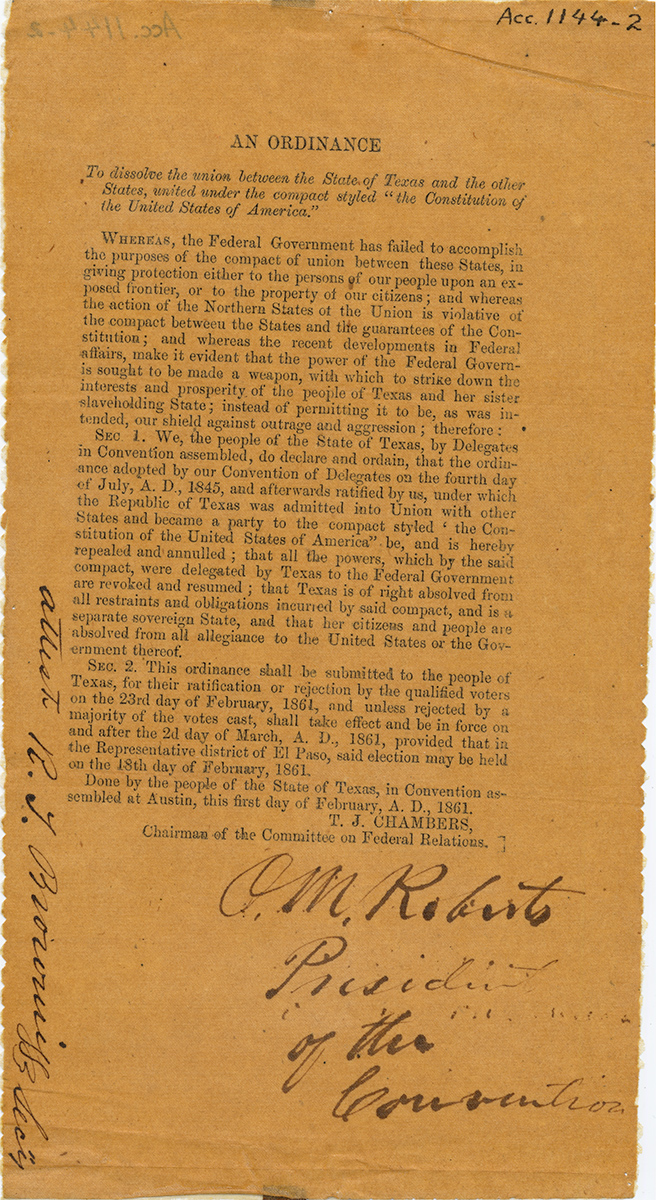 Acc. 1144-2
AN ORDINANCE
To dissolve the union between the State of Texas and the other
States, united under the compact styled "the Constitution of
the United States of America."
WHEREAS, the Federal Government has failed to accomplish
the purposes of the compact of union between these States, in
giving protection either to the persons of our people upon an ex-
posed frontier, or to the property of our citizens; and whereas
the action of the Northern States of the Union is violative of
the compact between the States and the guarantees of the Con-
stitution; and whereas the recent developments in Federal
affairs, make it evident that the power of the Federal Govern-
is sought to be made a weapon, with which to strike down the
interests and prosperity of the people of Texas and her sister
slaveholding State; instead of permitting it to be, as was in-
tended, our shield against outrage and aggression; therefore:
SEC. 1. We, the people of the State of Texas, by Delegates
in Convention assembled, do declare and ordain, that the ordin-
ance adopted by our Convention of Delegates on the fourth day
of July, A. D., 1845, and afterwards ratified by us, under which
the Republic of Texas was admitted into Union with other
States and became a party to the compact styled ' the Con-
stitution of the United States of America" be, and is hereby
repealed and annulled; that all the powers, which by the said
compact, were delegated by Texas to the Federal Government
are revoked and resumed; that Texas is of right absolved from
all restraints and obligations incurred by said compact, and is a
separate sovereign State, and that her citizens and people are
absolved from all allegiance to the United States or the Gov-
ernment thereof.
SEC. 2. This ordinance shall be submitted to the people of
Texas, for their ratification or rejection by the qualified voters
on the 23rd day of February, 1861, and unless rejected by a
majority of the votes cast, shall take effect and be in force on
and after the 2d day of March, A. D., 1861, provided that in
the Representative district of El Paso, said election may be held
on the 18th day of February, 1861.
Done by the people of the State of Texas, in Convention as-
sembled at Austin, this first day of February, A. D., 1861.
T. J. CHAMBERS,
Chairman of the Committee on Federal Relations. ]
O. M. Roberts
President
of the
Convention
attest R. T. Brownrigg Secy